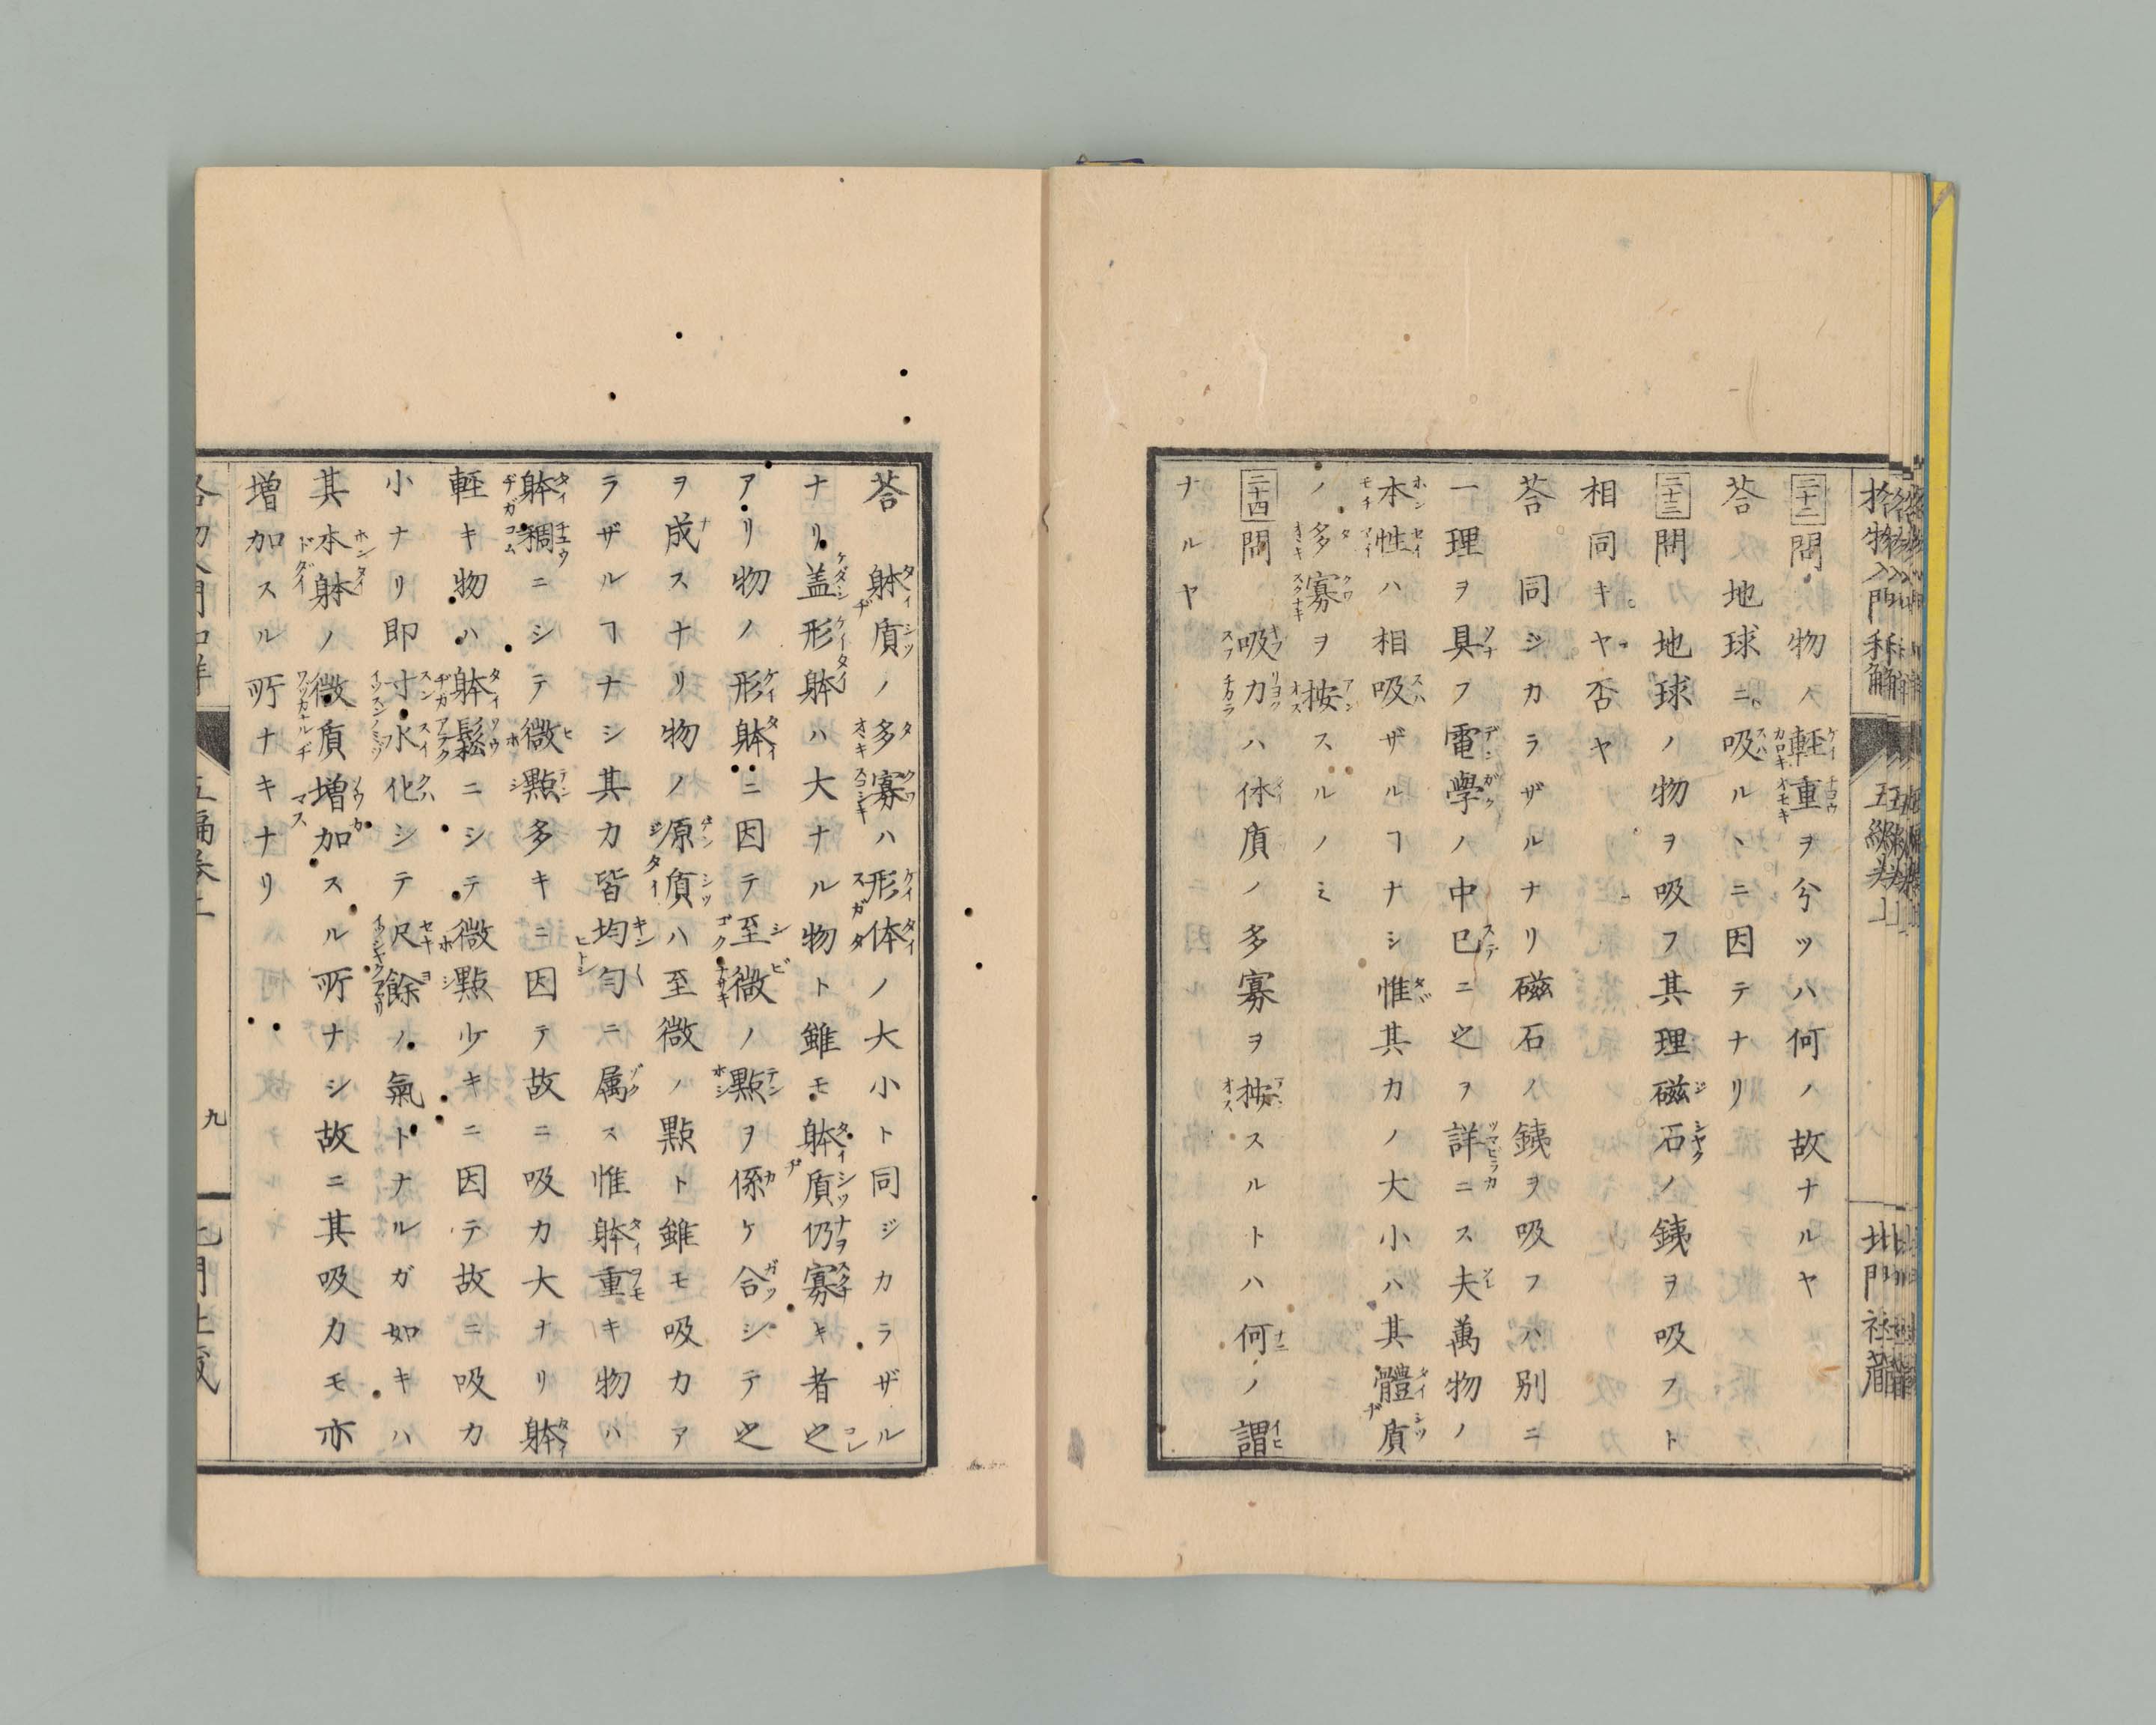 二十二 問 物ス軽重ヲ分ツハ何ノ故ナルヤ
答 地球ニ吸ルヽニ因テナリ
二十三 問 地球ノ物ヲ吸フ其理磁石ノ銕ヲ吸フト
相同キヤ否ヤ
答 同ジカラザルナリ磁石ノ銕ヲ吸フハ別ニ
一理ヲ具フ電學ノ中巳ニ之ヲ詳ニス夫萬物ノ
本性ハ相吸ザルヿナシ惟其力ノ大小ハ其體質
ノ多寡ヲ按スルノミ
二十四 問 吸力ハ体質ノ多寡ヲ按スルトハ何ノ謂
ナルヤ
答 躰質ノ多寡ハ形体ノ大小ト同ジカラザル
ナリ盖形躰ハ大ナル物ト雖モ躰質仍寡キ者之
アリ物ノ形躰ニ因テ至微ノ點ヲ係ケ合シテ之
ヲ成スナリ物ノ原質ハ至微ノ點ト雖モ吸力ア
ラザルヿナシ其力皆均匀ニ属ス惟躰重キ物ハ
躰稠ニシテ微點多キニ因テ故ニ吸力大ナリ躰
軽キ物ハ躰鬆ニシテ微點少キニ因テ故ニ吸力
小ナリ即寸水化シテ尺餘ノ氣トナルガ如キハ
其本躰ノ微質増加スル所ナシ故ニ其吸力モ亦
増加スル所ナキナリ
九